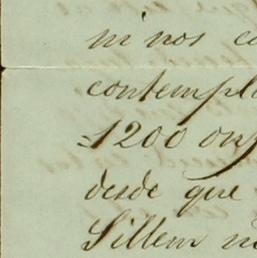 ni nos
contempl
=1200 on
desde que
Sillem